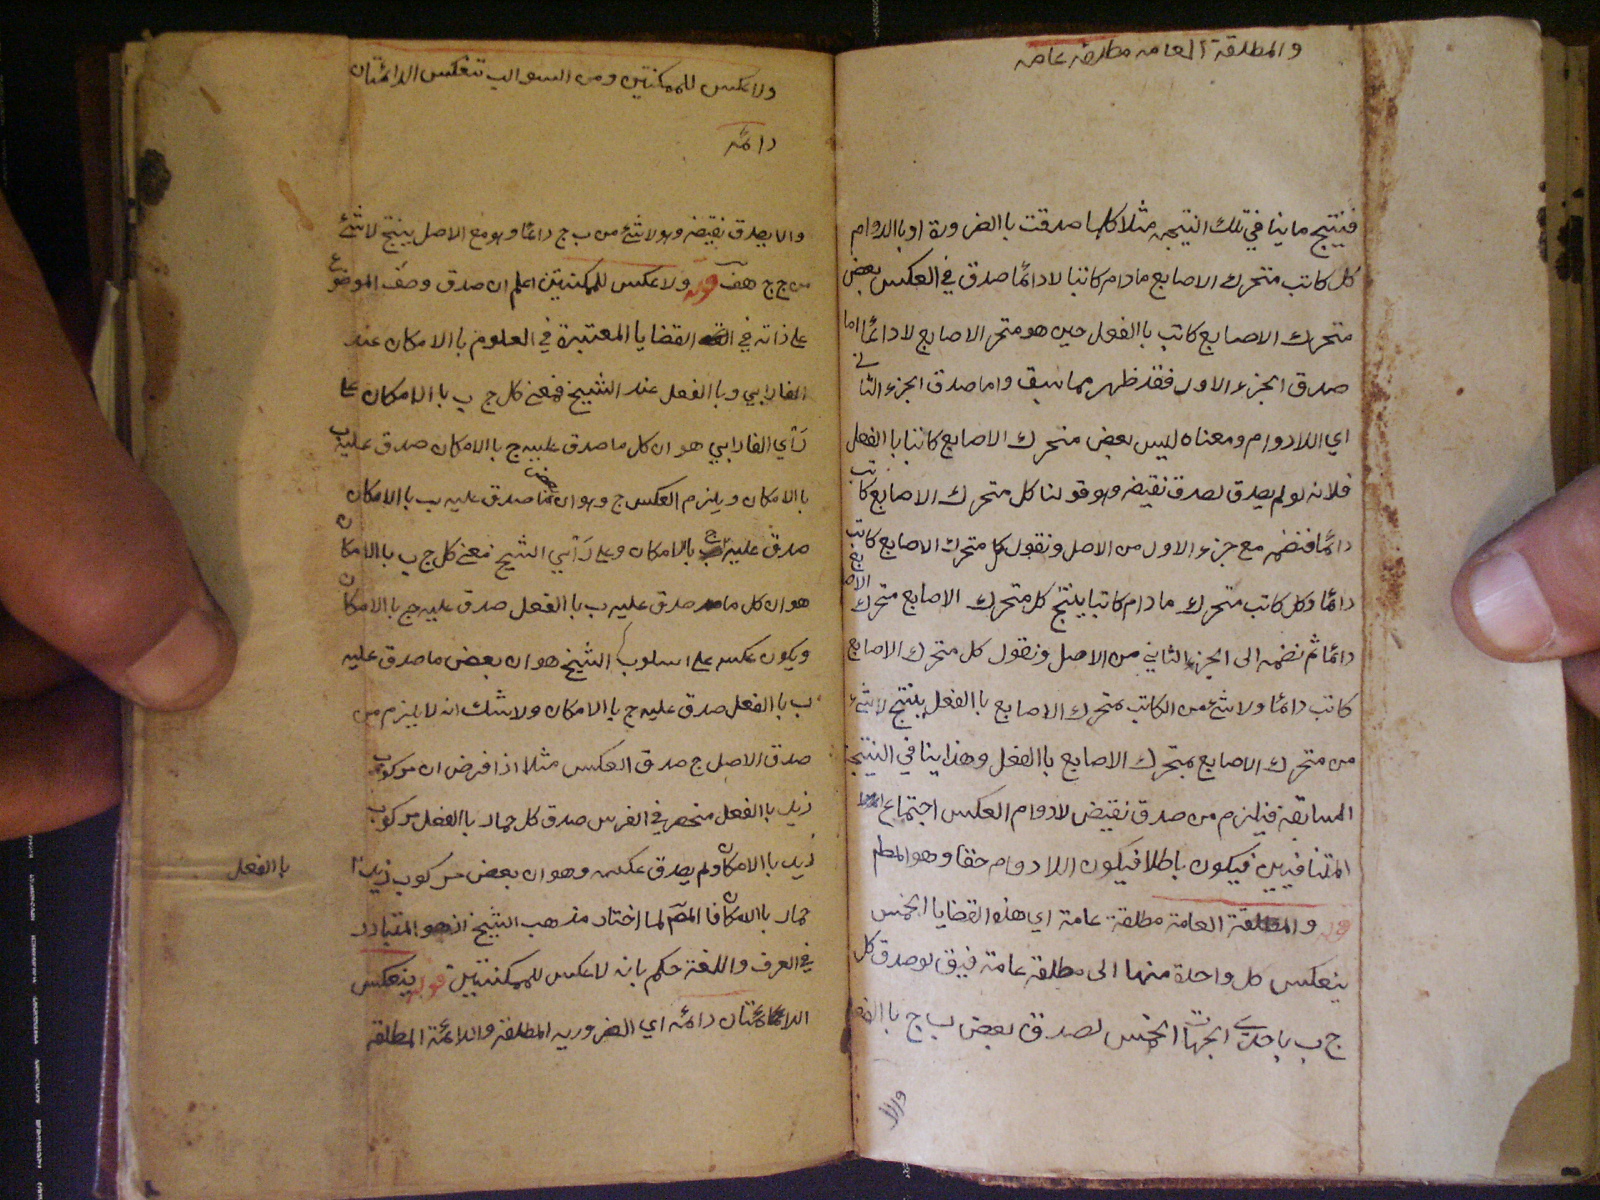 والمطلقة العامه مطلقه عامه
فينتج ما ينافي تلك النتيجه مثلا كلما صدقت باالضرورة او باالدوام
كل كاتب متحرك الاصابع مادام كاتبا لا دائما صدق في العكس بعض
متحرك الاصابع كاتب باالفعل حين هو متحر الاصابع لا دائما اما
صدق الجزء الاول فقد ظهر مما سبق واما صدق الجزء الثاني
اي اللادوام ومعناه ليس بعض متحرك الاصابع كاتبا باالفعل
فلانه لو لم يصدق لصدق نقيضه وهو قولنا كل متحرك الاصابع كاتب
دائما فنضمه مع جزء الاول من الاصل ونقول كل متحرك الاصابع كاتب
دائما وكل كاتب متحرك مادام كاتبا ينتج كل متحرك الاصابع متحرك الاصابع
دائما ثم نضمه الى الجزء الثاني من الاصل ونقول كل متحرك الاصابع
كاتب دائما ولا شئ من الكاتب بمتحرك الاصابع باالفعل ينتج لا شئ
من متحرك الاصابع بمتحرك الاصابع باالفعل وهذا ينافي النتيجة
السابقة فيلزم من صدق نقيض لادوام العكس اجتماع
المتنافيين فيكون باطلا فيكون اللادوام حقا وهو المطم
قوله والمطلقة العامة مطلقة عامة اي هذه القضايا الخمس
ينعكس كل واحدة منها الى مطلقة عامة فيق لو صدق كل
ج ب باحدي الجهات الخمس لصدق بعض ب ج باالفعل
والا
ولا عكس للممكنتين ومن السوالب تنعكس الدائمتان
دائمه
والا يصدق نقيضه وهو لا شئ من ب ج دائما وهو مع الاصل ينتج لا شئ
من ج ج هف قوله ولا عكس للممكنتين اعلم ان صدق وصف الموضوع
على ذاته في القضايا المعتبرة في العلوم باالامكان عند
الفارابي وباالفعل عند الشيخ فمعني كل ج ب باالامكان على
رأي الفارابي هو ان كل ما صدق عليه ج باالامكان صدق عليه ب
باالامكان ويلزم العكس ج وهو ان بعض ما صدق عليه ب باالامكان
صدق عليه ج باالامكان وعلى رأي الشيخ فمعني كل ج ب باالامكان
هو ان كل ما صدق عليه ب باالفعل صدق عليه ج باالامكان
ويكون عكسه على اسلوب الشيخ هو ان بعض ما صدق عليه
ب باالفعل صدق عليه ج باالامكان ولا شك انه لا يلزم من
صدق الاصل ج صدق العكس مثلا اذا فرض ان مركوب
زيد باالفعل منحصر في الفرس صدق كل حمار باالفعل مركوب
زيد باالامكان ولم يصدق عكسه وهو ان بعض مركوب زيد
باالفعل
حمار باالامكان فا المصم لما اختار مذهب الشيخ اذ هو المتبادر
في العرف واللغة حكم بانه لا عكس للممكنتين قوله ينعكس
الدائمتان دائمه اي الضروريه المطلقة والدائمة المطلقة